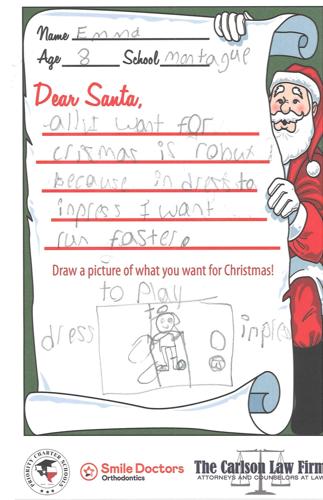 Name Emma
Age 8 School montague
Dear Santa,
all i want for
crismas is robux!
because in dress to
inpress I want
run faster.
Draw a picture of what you want for Christmas!
to play
dress inpress
PRIORITY CHARTER SCHOOLS
Smile Doctors
Orthodontics
The Carlson Law Firm
ATTORNEYS AND COUNSELORS AT LAW